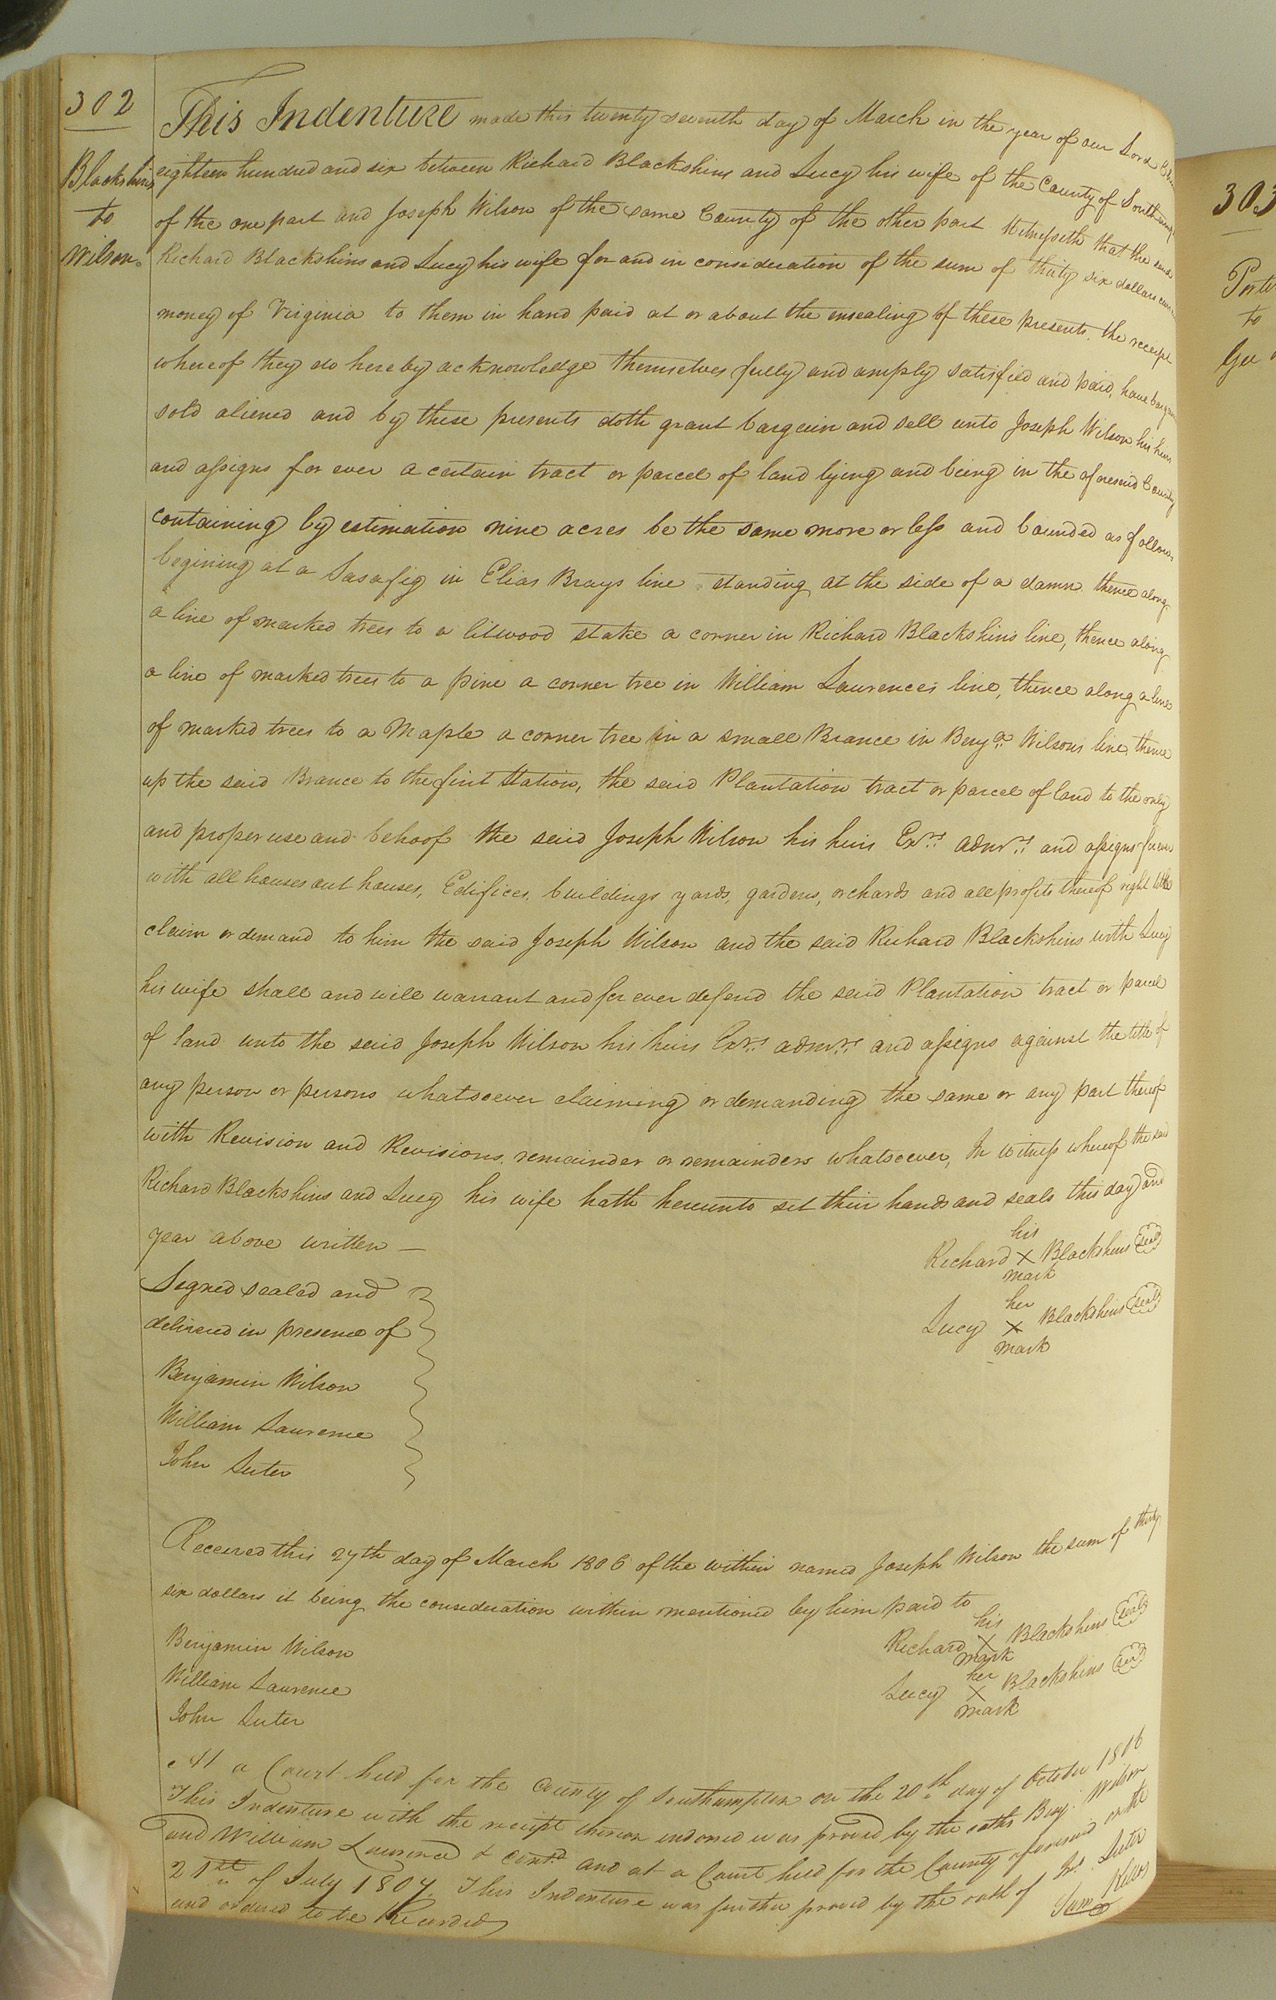 302
Blackshins
to
Wilson.
This Indenture made this twenty seventh day of March in the year of our Lord
eighteen hundred and six between Richard Blackshins and Lucy his wife of the County of
of the one part and Joseph Wilson of the same County of the other part Witnesseth that the said
Richard Blackshins and Lucy his wife for and in consideration of the sum of thirty six dollars
money of Virginia to them in hand paid at or about the ensealing of these presents, the receipt
whereof they do hereby acknowledge themselves fully and amply satisfied and paid, have
sold aliened and by these presents doth grant bargain and sell unto Joseph Wilson his heirs
and assigns for ever a certain tract or parcel of land lying and being in the aforesaid County
containing by estimation nine acres be the same more or less and bounded as follows
begining at a Sasafig in Elias Brays line standing at the side of a damn thence along
a line of marked trees to a litwood stake a corner in Richard Blackshins line, thence along
a line of marked trees to a pine a corner tree in William Laurences line, thence along a line
of marked trees to a Maple a corner tree in a small Brance in Benja. Wilsons line, thence
up the said Brance to the first Station, the said Plantation tract or parcel of land to the only
and proper use and behoof the said Joseph Wilson his heirs Exrs. admrs. and assigns forever
with all houses out houses, Edifices, buildings yards, gardens, orchards and all profits thereof right title
claim or demand to him the said Joseph Wilson and the said Richard Blackshins with Lucy
his wife shall and will warrant and for ever defend the said Plantation tract or parcel
of land unto the said Joseph Wilson his heirs Exrs. admrs. and assigns against the title of
any person or persons whatsoever claiming or demanding the same or any part thereof
with Revision and Revisions, remainder or remainders whatsoever, In witness whereof the said
Richard Blackshins and Lucy his wife hath hereunto set their hands and seals this day and
year above written —
his
Richard X Blackshins seal
mark
her
Lucy X Blackshins seal
mark
Signed sealed and
delivered in presence of
Benjamin Wilson
William Laurence
John Suter
Received this 27th day of March 1806 of the within named Joseph Wilson the sum of thirty
six dollars it being the consideration within mentioned by him paid to
his
Richard X Blackshins seal
mark
her
Lucy X Blackshins seal
mark
Benjamin Wilson
William Laurence
John Suter
At a Court held for the County of Southampton on the 20th day of October 1806
This Indenture with the receipt thereon indorsed was proved by the oaths Benj. Wilson
and William Laurence & contd. and at a Court held for the County aforesaid on the
21st of July 1807. This Indenture was further proved by the oath of Jno. Suter
and ordered to be Recorded
303
to